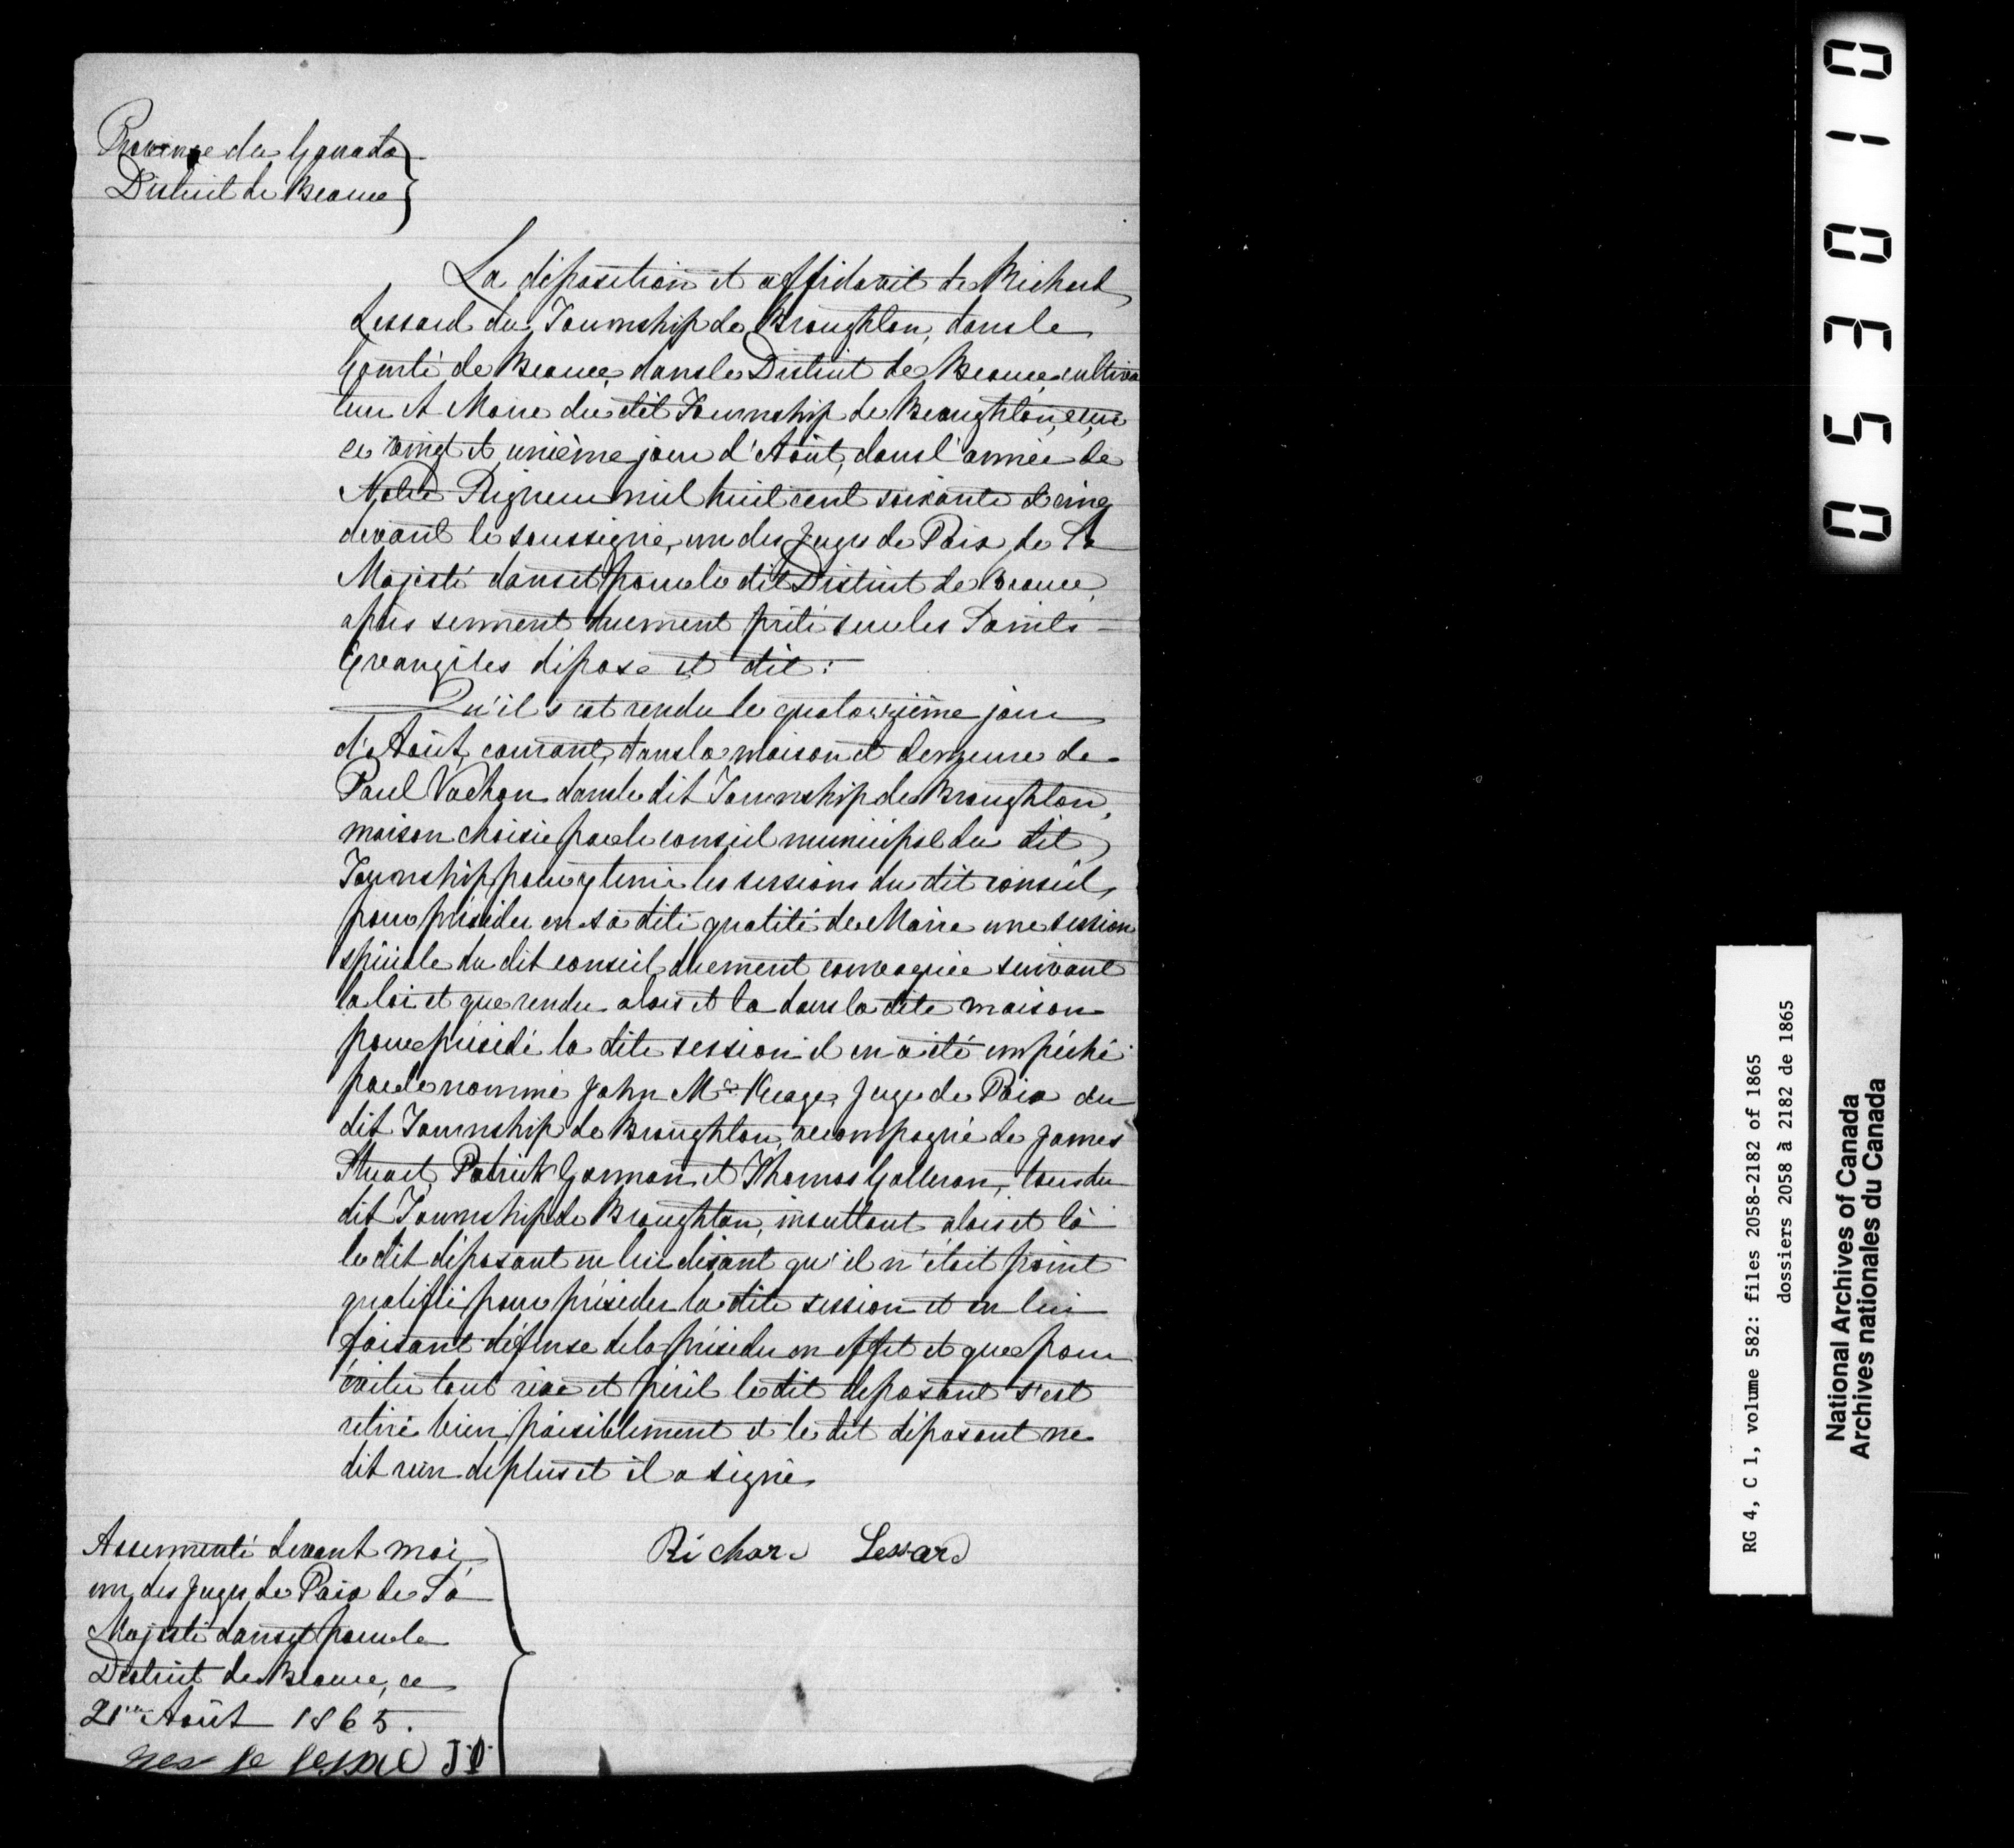 Province du Canada
District de Beauce
La déposition et affidavit de Richard
Lessard du Township de Broughton, dans le
Comté de Beauce, dans le District de Beauce, cultiva
teur et Maire du dit Township de Broughton,
ce vingt et unième jour d'Août, dans l'année de
Notre Seigneur mil huit cent soixante et cinq
devant le soussigné, un des Juges de Paix de Sa
Majesté dans et pour le dit District de Beauce,
après serment duement prêté sur les Saints
Evangiles dépose et dit :
Qu'il s'est rendu le quatorzième jour
d'Août, courant, dans la maison et demeure de
Paul Vachon dans le dit Township de Broughton,
maison choisie par le conseil municipal du dit
Township pour y tenir les sessions du dit conseil,
pour présider en sa dite qualité de Maire une session
spéciale du dit conseil duement convoquée suivant
la loi et que rendu alors et là dans la dite maison
pour présidé la dite session il en a été empêché
par le nommé John McKeage, Juge de Paix du
dit Township de Broughton, accompagné de James
Stuart, Patrick Gorman et Thomas Galleran, tous du
dit Township de Broughton, insultant alors et là
le dit déposant en lui disant qu'il n'était point
qualifié pour présider la dite session et en lui
faisant défense de la présider en effet et que pour
éviter tout rixe et péril le dit déposant s'est
retiré bien paisiblement et le dit déposant ne
dit rien de plus et il a signé
Richard Lessard
Assermenté devant moi
un des Juges de Paix de Sa
Majesté dans et pour le
District de Beauce, ce
21me Août 1865.
J.P.
0 1 0 3 5 0
RG 4, C 1, volume 582: files 2058-2182 of 1865
dossiers 2058 à 2182 de 1865
National Archives of Canada
Archives nationales du Canada